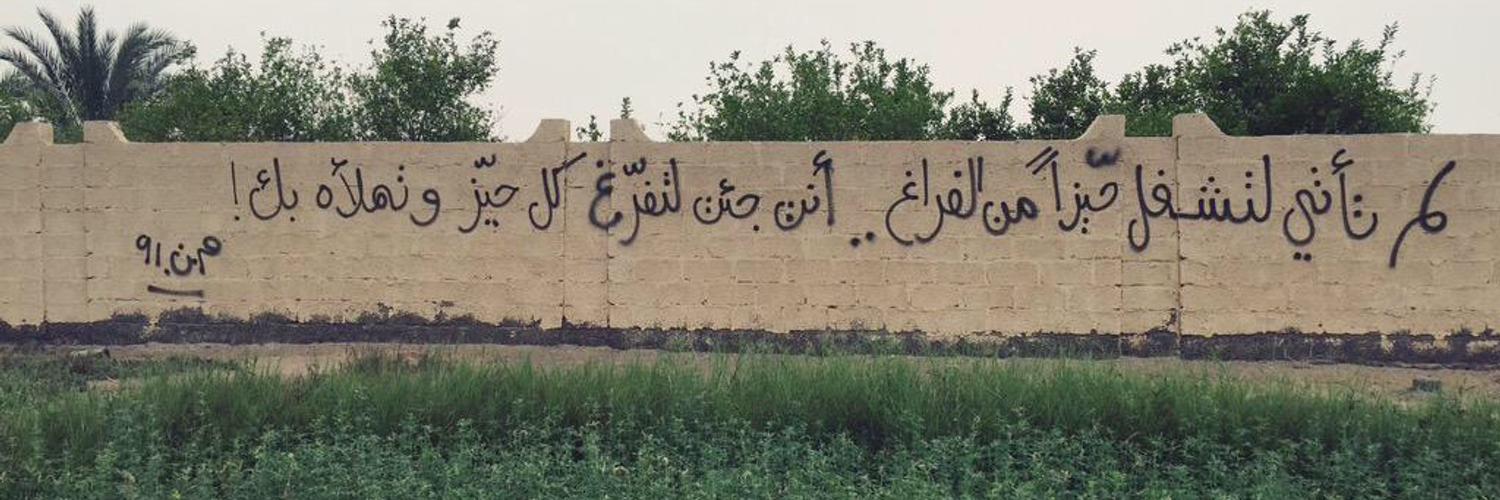 لم تأتي لتشغل حيّزاً من الفراغ .. أنت جئت لتفرّغ كل حيّز وتملأه بك!
م.ن.٩١